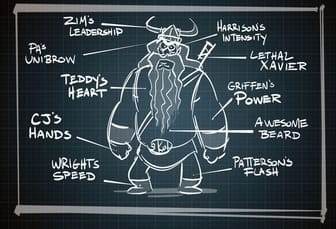 ZIM'S
LEADERSHIP
HARRISON'S
INTENSITY
PA'S
UNIBROW
LETHAL
XAVIER
TEDDY'S
HEART
GRIFFEN'S
POWER
CJ'S
HANDS
AWESOME
BEARD
WRIGHT'S
SPEED
PATTERSON'S
FLASH
SKOL